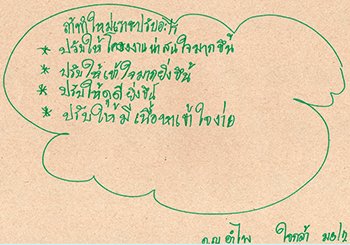 ถ้าทำใหม่เราจะปรับอะไร
* ปรับให้โครงงานน่าสนใจมากขึ้น
* ปรับให้เข้าใจมากยิ่งขึ้น
* ปรับให้ดูดียิ่งขึ้น
* ปรับให้มีเนื้อหาเข้าใจง่าย
ด.ญ อำไพ ใจกล้า ม๑/๑